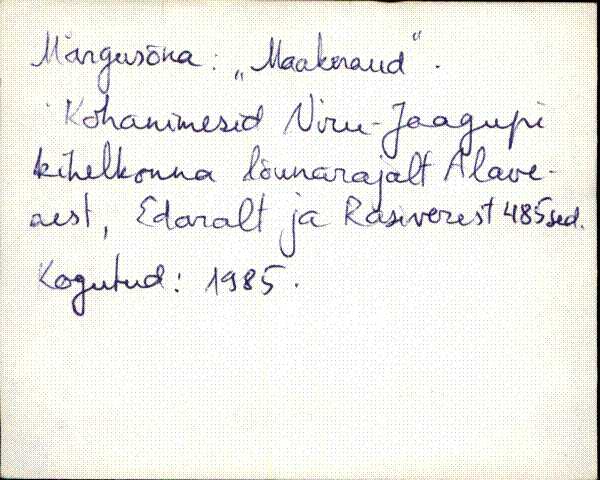 Märgusõna: „Maakeraud".
Kohanimesid Viru-Jaagupi
kihelkonna lõunarajalt Alave-
aest, Edaralt ja Räsiverest 485 sed.
Kogutud: 1985.